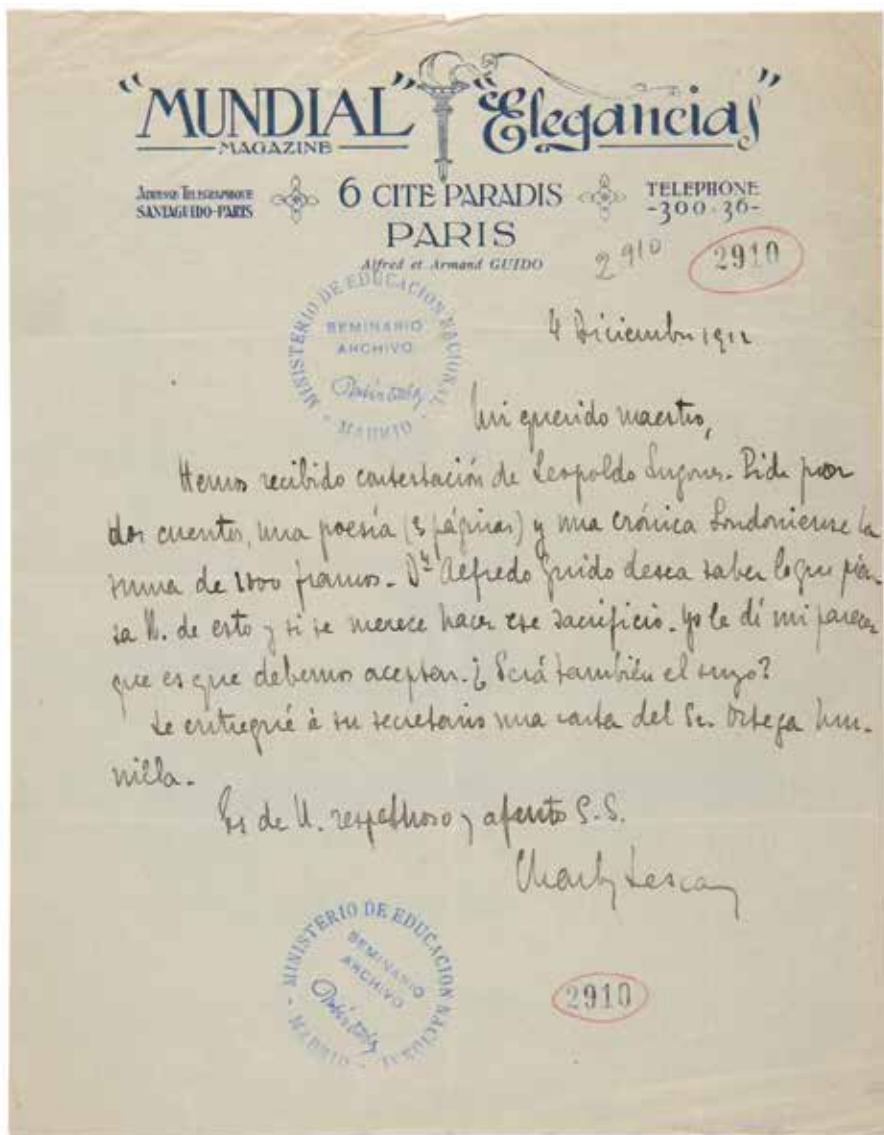 "MUNDIAL" "Elegancias"
MAGAZINE
ADRESSE TELEGRAPHIQUE
SANTAGUIDO-PARIS
6 CITE PARADIS
TELEPHONE
-300-36-
PARIS
Alfred et Armand GUIDO
2910
2910
MINISTERIO DE EDUCACION NACIONAL
SEMINARIO
ARCHIVO
Rubén Darío
- MADRID -
4 Diciembre 1912
Mi querido maestro,
Hemos recibido contestación de Leopoldo Lugones. Pide por
dos cuentos, una poesía (3 páginas) y una crónica Londoniense la
suma de francos. Dn Alfredo Guido desea saber lo que pien-
sa U. de esto y si se merece hacer ese sacrificio. Yo le dí mi parecer
que es que debemos aceptar. ¿Será también el suyo?
Le entregué á su secretario una carta del Sr. Ortega Mu-
nilla.
Es de U. respetuoso y afecto S.S.
Charles Lesca
MINISTERIO DE EDUCACION NACIONAL
SEMINARIO
ARCHIVO
Rubén Darío
- MADRID -
2910